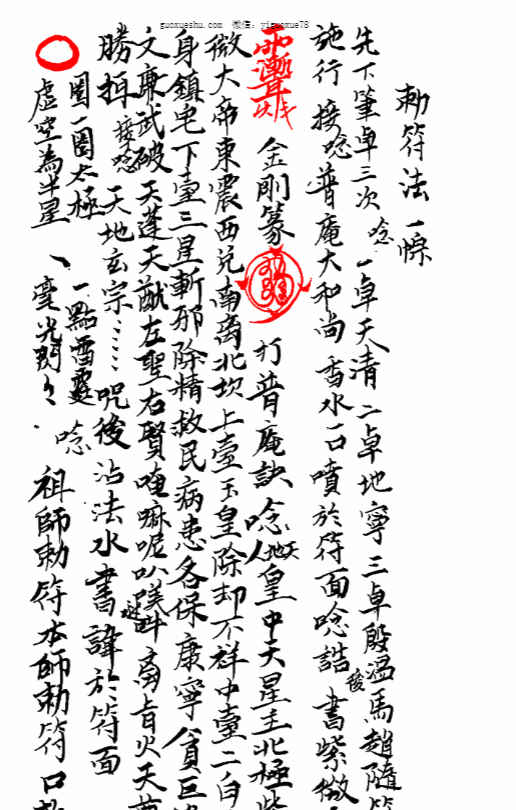 guoxueshu.com 微信：yiguoxue78
勅符法一樑
先下筆卓三次 唸 一卓天清 二卓地寧 三卓殷温馬趙隨符
施行 接唸 普庵大和尚 香水一口噴於符面唸誥 後書紫微
金剛篆 打普庵訣 唸 天地人皇中天星主北極紫
微大帝東震西兌南离北坎上臺玉皇除却不祥中臺二白
身鎮宅下臺三星斬邪除精救民病患各保康寧貪巨
文廉武破天蓬天猷左聖右賢唵嘛呢叭 吽 斋音火天
勝拜 接唸 天地玄宗……咒後沾法水書諱於符面
圈一圈太極 一點酉靈 唸
虛空為半星 毫光閃々 祖師勅符本師勅符口